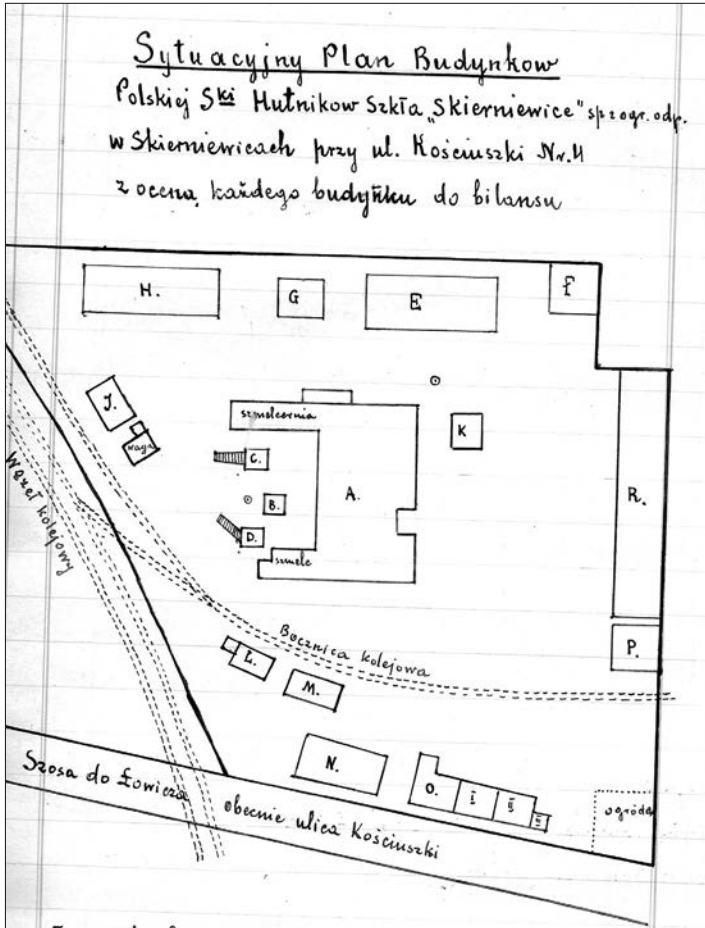 Sytuacyjny Plan Budynkow
Polskiej Ski Hutnikow Szkła „Skierniewice" sp z ogr. odp.
w Skierniewicach przy ul. Kościuszki Nr. 4
z oceną każdego budyńku do bilansu
H.
G
E
f
J.
waga
szmelcernia
K
C.
A.
B.
R.
D.
szmelc
Węzeł kolejowy
Bocznica kolejowa
P.
Ł.
M.
N.
O.
I
II
III
ogródek
Szosa do Łowicza obecnie ulica Kościuszki